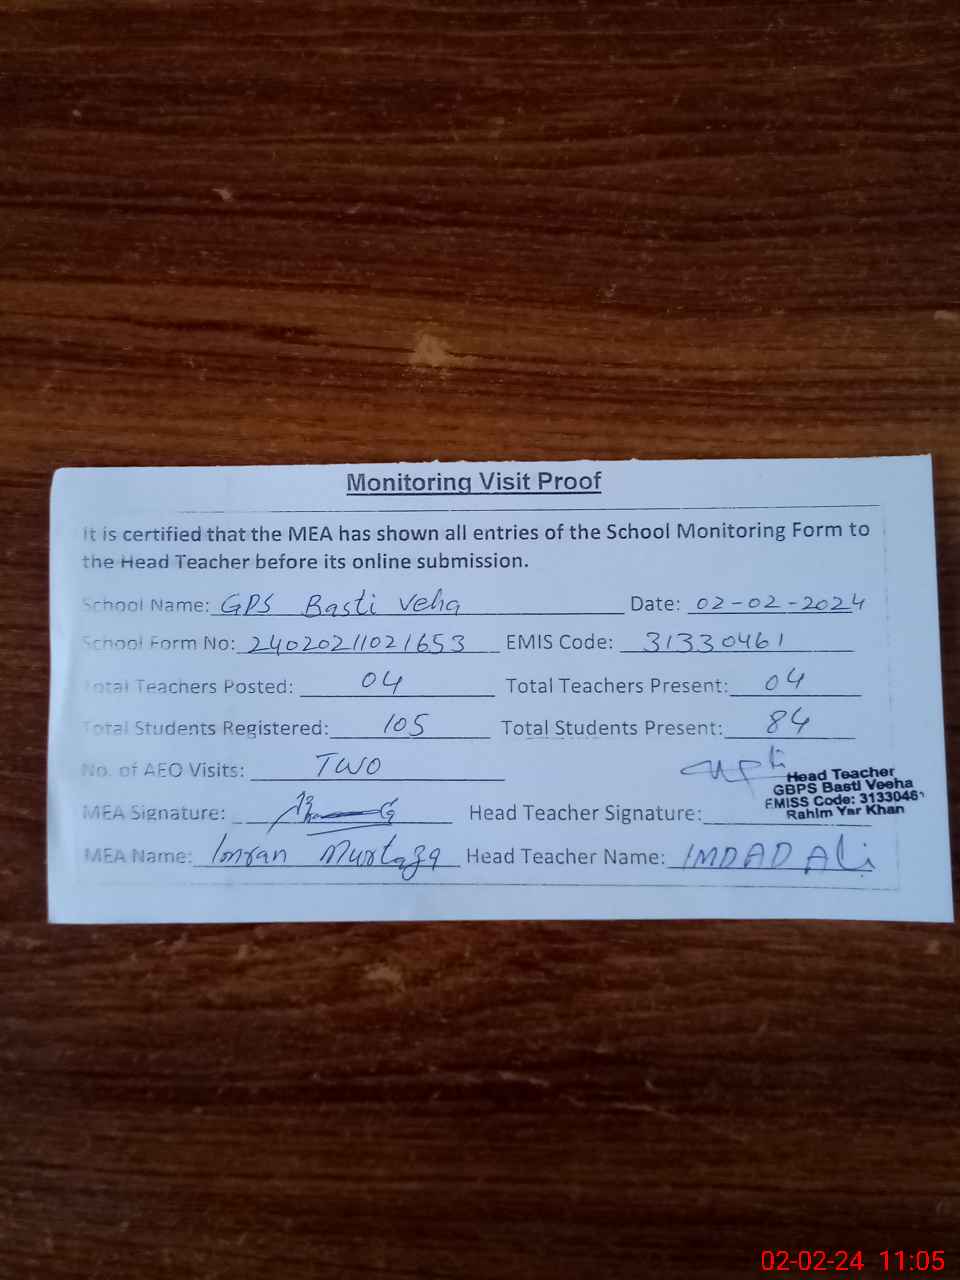 Monitoring Visit Proof
It is certified that the MEA has shown all entries of the School Monitoring Form to
the Head Teacher before its online submission.
School Name: GPS Basti Veha Date: 02-02-2024
School Form No: 24020211021653 EMIS Code: 31330461
Total Teachers Posted: 04 Total Teachers Present: 04
Total Students Registered: 105 Total Students Present: 84
No. of AEO Visits: Two
Head Teacher
GBPS Basti Veeha
EMISS Code: 31330461
Rahim Yar Khan
MEA Signature: Head Teacher Signature:
MEA Name: Imran Murtaza Head Teacher Name: IMDAD Ali
02-02-24 11:05